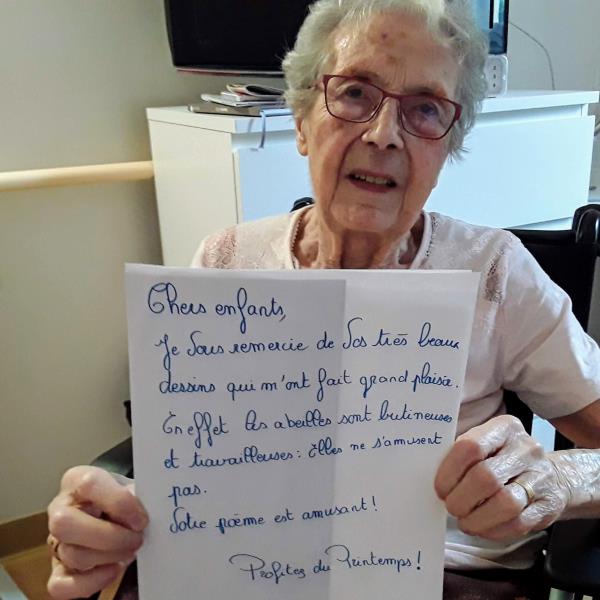 Chers enfants,
Je vous remercie de vos très beaux
dessins qui m'ont fait grand plaisir.
En effet les abeilles sont butineuses
et travailleuses : elles ne s'amusent
pas.
Votre poëme est amusant !
Profitez du Printemps !